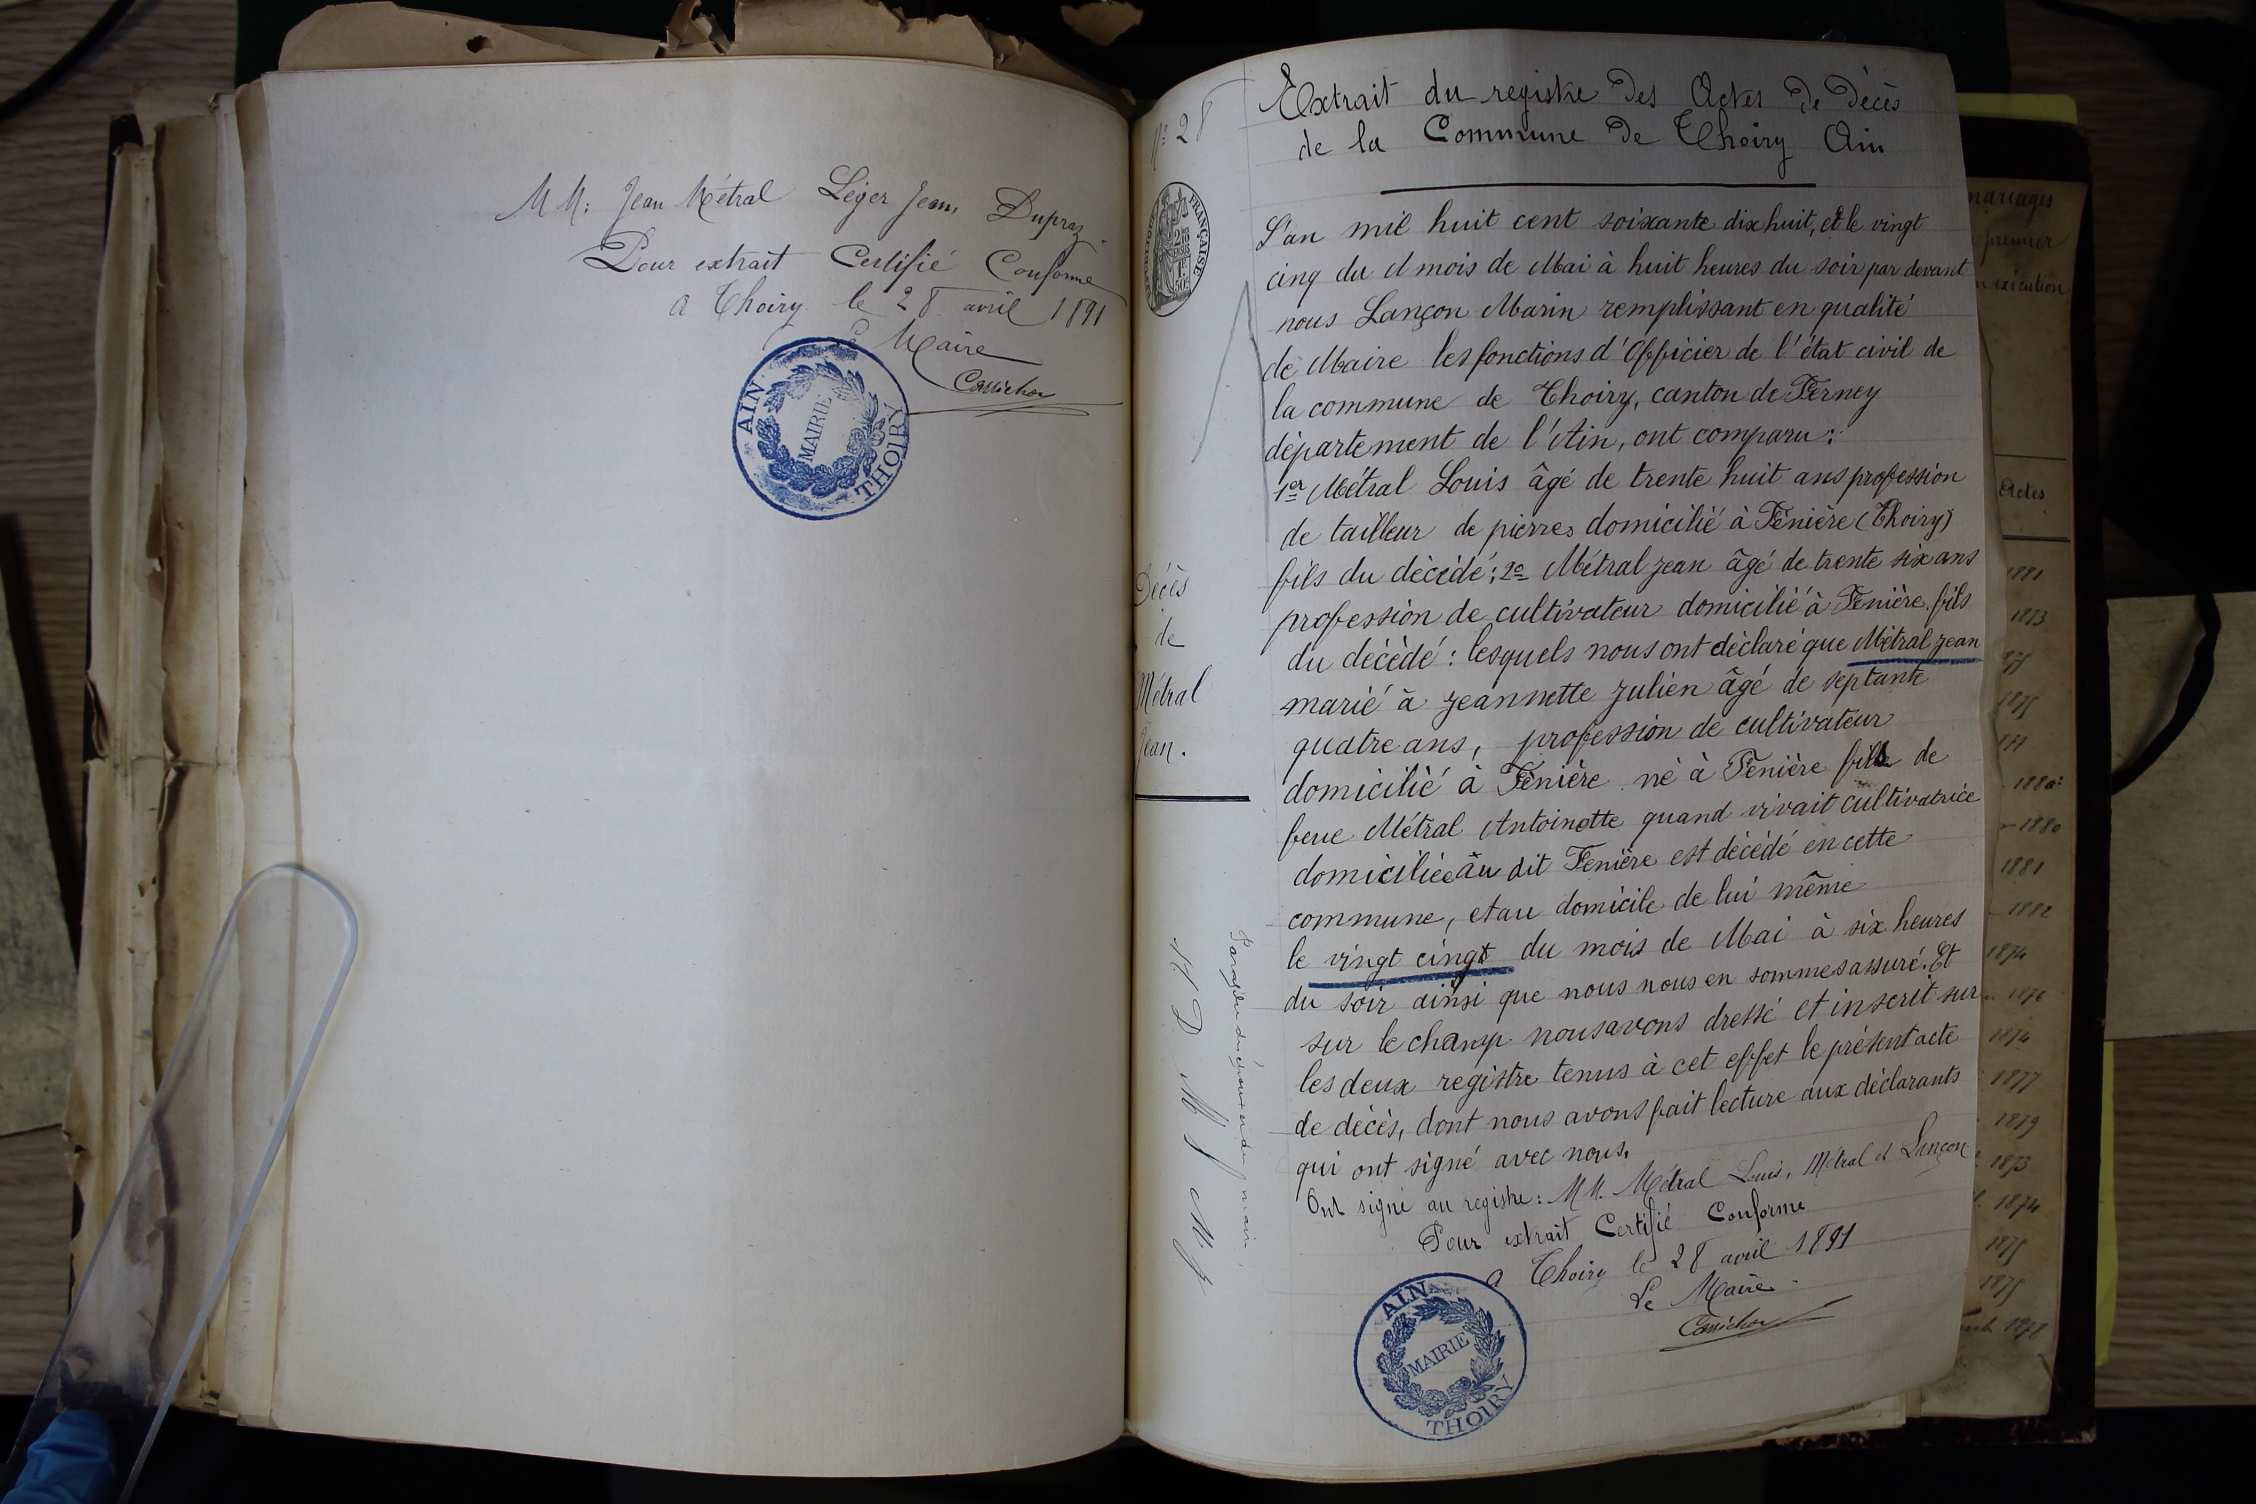 MM: Jean Métral Léger Jean, Dupraz
Pour extrait Certifié Conforme
A Thoiry le 28 avril 1891
Le Maire
AIN
MAIRIE
THOIRY
No 28
Extrait du registre des Actes de Décès
de la Commune de Thoiry Ain
FRANÇAISE
L'an mil huit cent soixante dix huit, et le vingt
cinq du mois de Mai à huit heures du soir par devant
nous Lançon Marin remplissant en qualité
de Maire les fonctions d'Officier de l'état civil de
la commune de Thoiry, canton de Ferney
département de l'Ain, ont comparu:
1er Métral Louis âgé de trente huit ans profession
de tailleur de pierres domicilié à Fenière (Thoiry)
fils du décédé; 2o Métral Jean âgé de trente six ans
profession de cultivateur domicilié à Fenière fils
du décédé: lesquels nous ont déclaré que Métral Jean
marié à Jeannette Julien âgé de septante
quatre ans, profession de cultivateur
domicilié à Fenière né à Fenière fils de
feue Métral Antoinette quand vivait cultivatrice
domiciliée au dit Fenière est décédé en cette
commune, et au domicile de lui même
le vingt cinq du mois de Mai à six heures
du soir ainsi que nous nous en sommes assuré. Et
sur le champ nous avons dressé et inscrit sur
les deux registre tenus à cet effet le présent acte
de décès, dont nous avons fait lecture aux déclarants
qui ont signé avec nous.
Ont signé au registre: MM. Métral Louis, Métral et Lançon
Pour extrait Certifié Conforme
A Thoiry le 28 avril 1891
Le Maire
AIN
MAIRIE
THOIRY
Décès
de
Métral
Jean.
mariages
premier
exécution
Actes
1881
1873
1880
1880
1881
1882
1874
1876
1874
1877
1879
1873
1874
1878